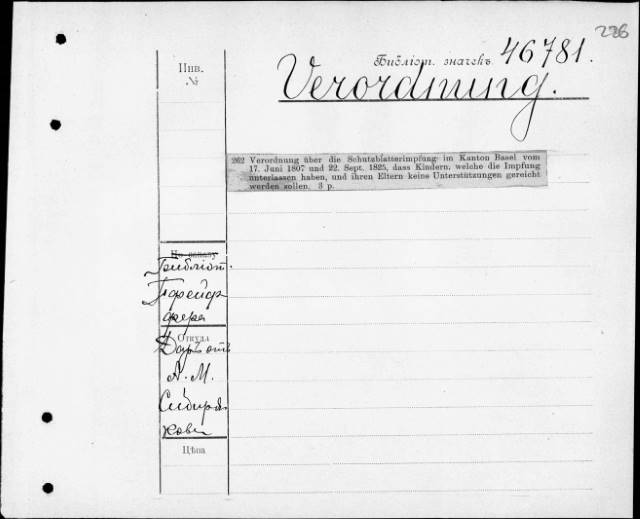 226
Библіот. значекъ 46781.
Verordnung.
Инв.
№
262 Verordnung über die Schutzblatterimpfung im Kanton Basel vom
17. Juni 1807 und 22. Sept. 1825, dass Kindern, welche die Impfung
unterlassen haben, und ihren Eltern keine Unterstützungen gereicht
werden sollen. 3 p.
По каналу
Библіот.
Пфейф
фера
Откуда
Даръ отъ
А. М.
Сибиря
кова
Цѣна